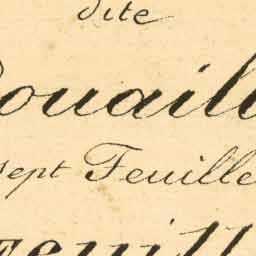 dite
ouaill
sept Feuille
Feuill